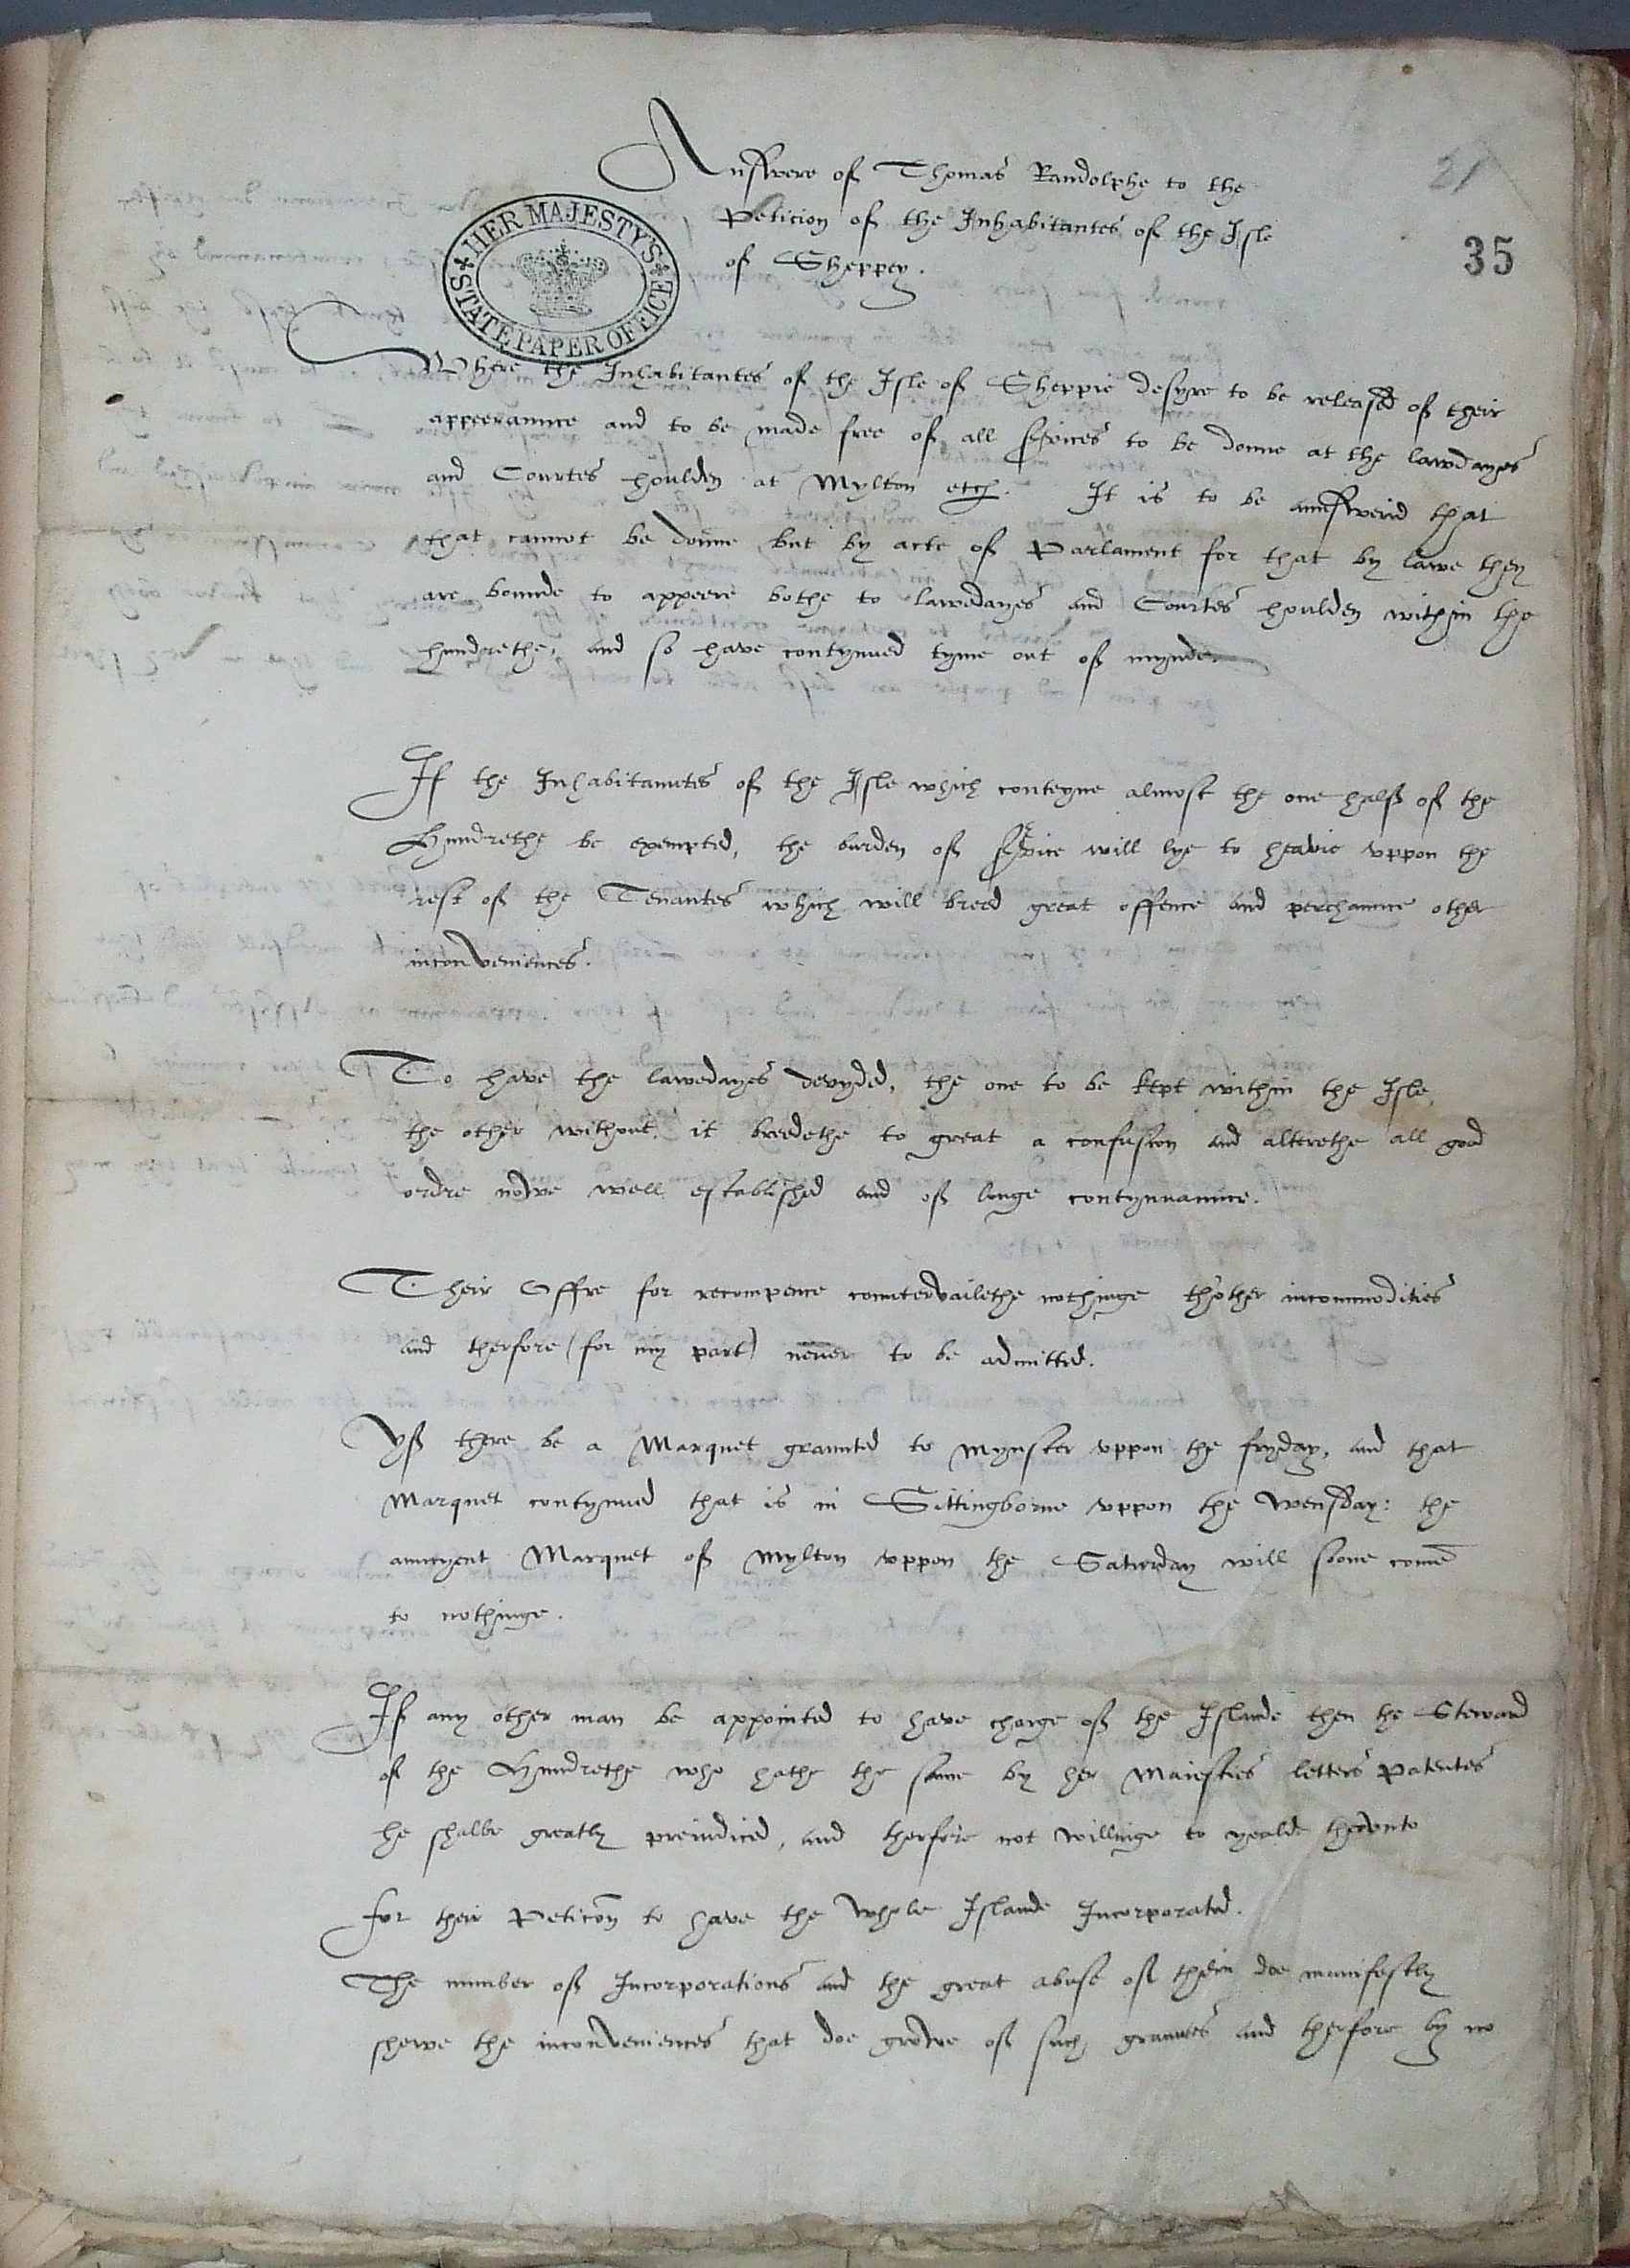 21
35
HER MAJESTY'S STATE PAPER OFFICE
Answere of Thomas Randolphe to the
Peticion of the Inhabitantes of the Isle
of Sheppey.
Where the Inhabitantes of the Isle of Sheppie desyre to be released of their
appeeraunce and to be made free of all services to be donne at the lawdayes
and Courtes houlden at Mylton etc. It is to be aunswerid that
that cannot be donne but by acte of Parlament for that by lawe they
are bounde to appeere bothe to lawedayes and Courtes houlden within the
hundrethe, and so have contynued tyme out of mynde.
If the Inhabitauntes of the Isle which conteyne almost the one half of the
Hundrethe be exempted, the burden of service will lye to heavie uppon the
rest of the Tenantes which will breed great offence and perchaunce other
inconveniences.
To have the lawedayes devyded, the one to be kept within the Isle,
the other without, it breedethe to great a confusion and alterethe all good
ordre nowe well established and of longe contynuaunce.
Their Offre for recompence countervailethe nothinge thother incommodities
and therfore (for my part) never to be admitted.
Yf there be a Marquet graunted to Mynster uppon the fryday, and that
Marquet contynued that is in Sittingborne uppon the Wensday: the
auncyent Marquet of Mylton uppon the Saturday will soone come
to nothinge.
If any other man be appointed to have charge of the Islande then the Steward
of the Hundrethe who hathe the same by her Maiesties letters Patentes
he shalbe greatly preiudiced, and therfore not willinge to yealde therunto
for their Peticon to have the whole Islande Incorporated.
The number of Incorporations and the great abuse of them doe manifestly
shewe the inconveniences that doe growe of such grauntes and therfore by no